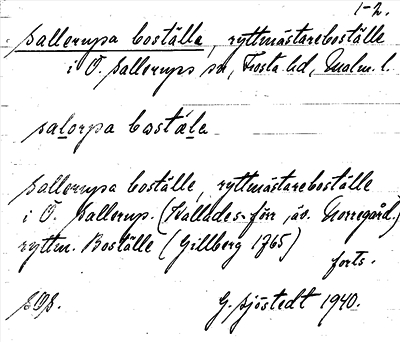 1-2.
Sallerupa boställe, ryttmästareboställe
i Ö. Sallerups sn, Frosta hd, Malm. l.
salorpa bostäle
Sallerupa boställe, ryttmästareboställe
i Ö. Sallerup. (Kallades förr äv. Norregård.)
ryttm. Boställe (Gillberg 1765)
forts.
G. Sjöstedt 1940.